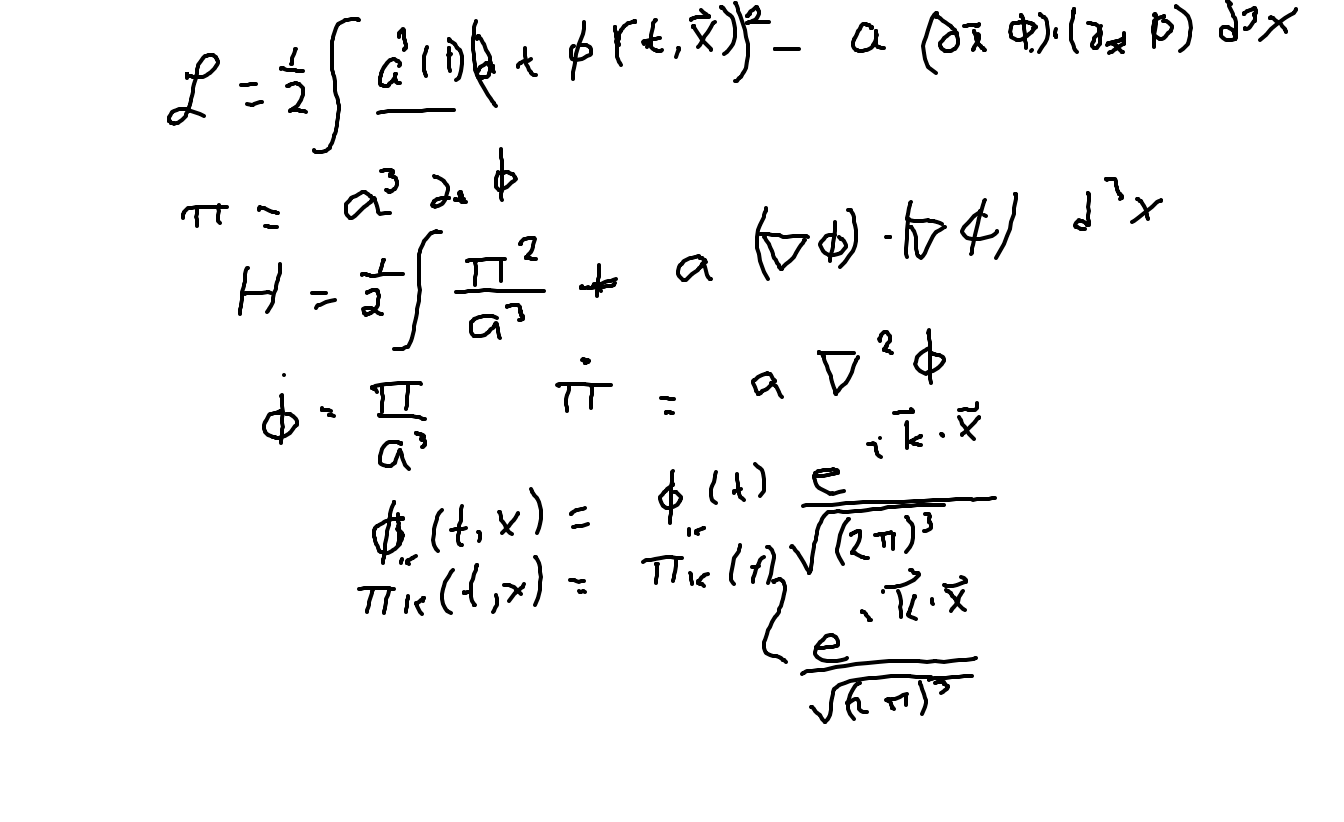 ℒ = 1/2 ∫ a³(t)(∂t φ(t, x⃗))² − a (∂x⃗ φ)·(∂x φ) d³x
π = a³ ∂t φ
H = 1/2 ∫ Π²/a³ + a (∇φ)·(∇φ) d³x
φ̇ = Π/a³   π̇ = a ∇²φ
φₖ(t,x) = φₖ(t) e^{i k⃗·x⃗}/√(2π)³
πₖ(t,x) = πₖ(t) { e^{i k⃗·x⃗}/√(2π)³